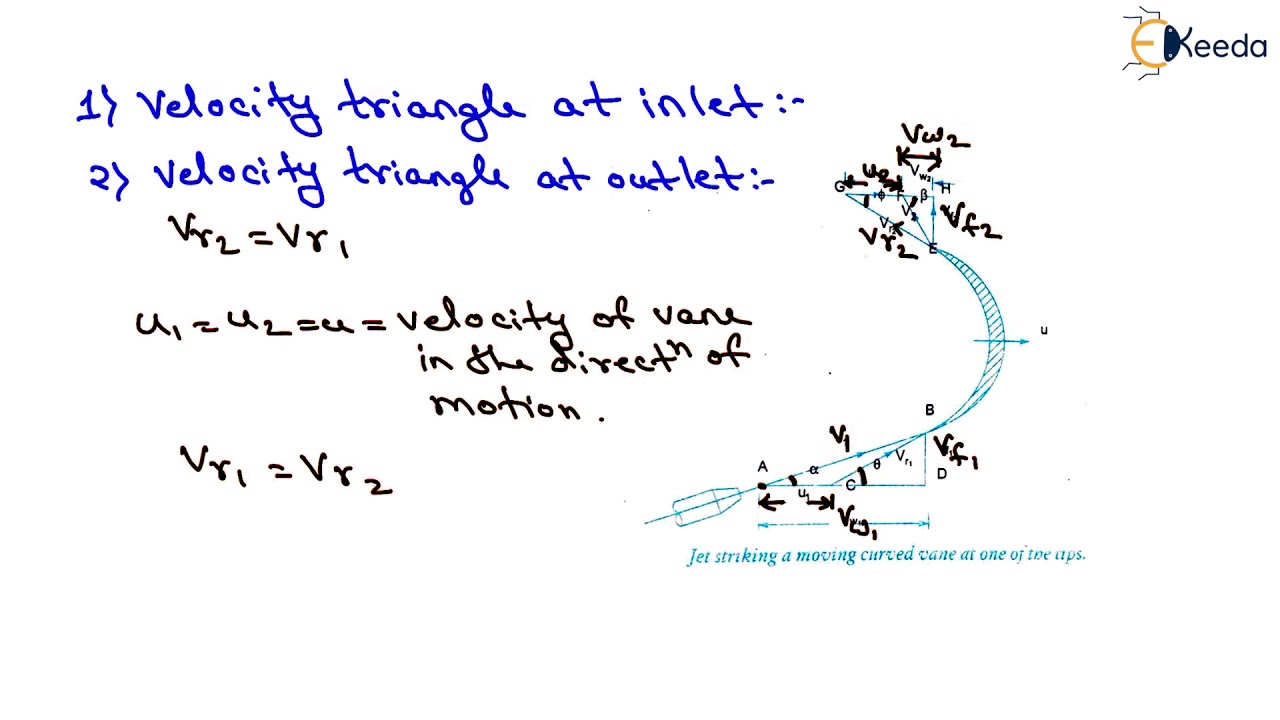 EKeeda
1) Velocity triangle at inlet:-
2) Velocity triangle at outlet:-
Vr2 = Vr1
u1 = u2 = u = velocity of vane
in the directn of
motion.
Vr1 = Vr2
Vw2
Vw2
G u2 F H
φ β
V2 Vf2
Vr2
E
u
B
V1 Vf1
A α θ Vr1 D
u1 C
Vw1
Jet striking a moving curved vane at one of the tips.